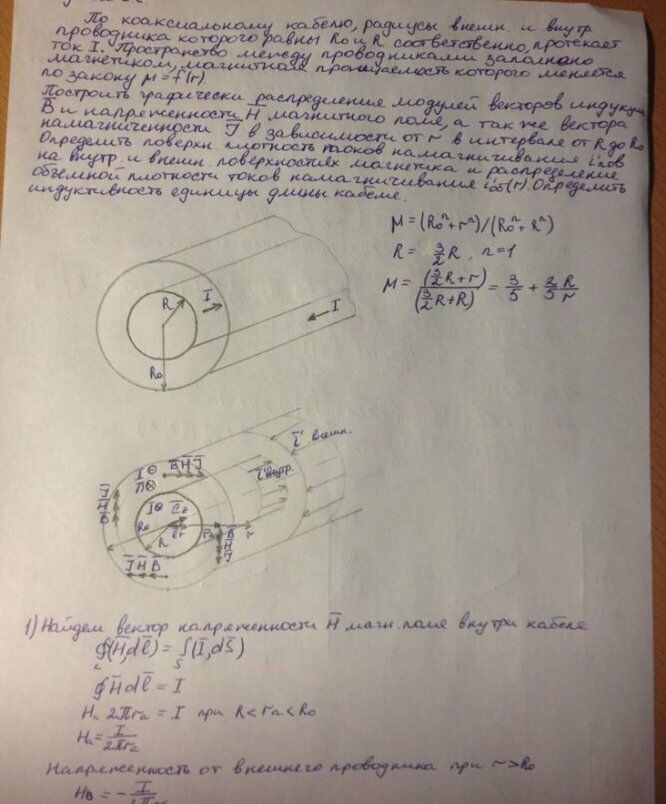 По коаксиальному кабелю, радиусы внешн. и внутр.
проводника которого равны R₀ и R соответственно, протекает
ток I. Пространство между проводниками заполнено
магнетиком, магнитная проницаемость которого меняется
по закону μ = f(r).
Построить графически распределения модулей векторов индукции
B и напряженности H̅ магнитного поля, а так же вектора
намагниченности J̅ в зависимости от r в интервале от R до R₀
Определить поверхн. плотность токов намагничивания i'пов
на внутр. и внешн. поверхностях магнетика и распределение
объемной плотности токов намагничивания i'об(r). Определить
индуктивность единицы длины кабеля.
M = (R₀ⁿ+rⁿ)/(R₀ⁿ+Rⁿ)
R = 3/2 R, n=1
M = (3/2 R+r)/(3/2 R+R) = 3/5 + 2/5 R/r
R
I̅
I
R₀
i̅' внешн.
i̅' внутр.
I
B̅ H̅ J̅
J̅
H̅
B̅
I
R₀
R
r
B̅
H̅
J̅
J̅ H̅ B̅
1) Найдем вектор напряженности H̅ магн. поля внутри кабеля
∮L(H̅,dl̅) = ∫S(I̅,dS̅)
∮H̅dl̅ = I
Hₐ 2πrₐ = I при R<rₐ<R₀
Hₐ = I/2πrₐ
Напряженность от внешнего проводника при r>R₀